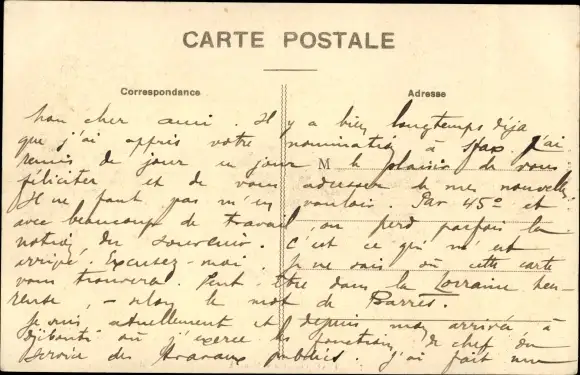 CARTE POSTALE
Correspondance
Adresse
Mon cher ami. Il y a bien longtemps déja
que j'ai appris votre nomination à Sfax. J'ai
remis de jour en jour M le plaisir de vous
féliciter et de vous adresser de mes nouvelles.
Il ne faut pas m'en vouloir. Par 45° et
avec beaucoup de travail, on perd parfois la
notion du souvenir. C'est ce qui m'est
arrivé. Excusez-moi. Je ne sais où cette carte
vous trouvera. Peut-être dans la Lorraine heu-
reuse, - selon le mot de Barrès.
Je suis actuellement et depuis mon arrivée à
Djibouti où j'exerce les fonctions de chef du
Service des travaux publics. J'ai fait une